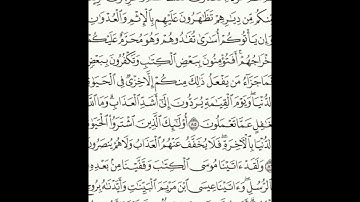 مِنكُم مِّن دِيَـٰرِهِمْ تَظَـٰهَرُونَ عَلَيْهِم بِٱلْإِثْمِ وَٱلْعُدْوَٰنِ
وَإِن يَأْتُوكُمْ أُسَـٰرَىٰ تُفَـٰدُوهُمْ وَهُوَ مُحَرَّمٌ عَلَيْكُمْ
إِخْرَاجُهُمْ ۚ أَفَتُؤْمِنُونَ بِبَعْضِ ٱلْكِتَـٰبِ وَتَكْفُرُونَ بِبَعْضٍ
فَمَا جَزَآءُ مَن يَفْعَلُ ذَٰلِكَ مِنكُمْ إِلَّا خِزْىٌ فِى ٱلْحَيَوٰةِ
ٱلدُّنْيَا ۖ وَيَوْمَ ٱلْقِيَـٰمَةِ يُرَدُّونَ إِلَىٰٓ أَشَدِّ ٱلْعَذَابِ ۗ وَمَا ٱللَّهُ
بِغَـٰفِلٍ عَمَّا تَعْمَلُونَ ٨٥ أُو۟لَـٰٓئِكَ ٱلَّذِينَ ٱشْتَرَوُا۟ ٱلْحَيَوٰةَ
ٱلدُّنْيَا بِٱلْـَٔاخِرَةِ ۖ فَلَا يُخَفَّفُ عَنْهُمُ ٱلْعَذَابُ وَلَا هُمْ يُنصَرُونَ
وَلَقَدْ ءَاتَيْنَا مُوسَى ٱلْكِتَـٰبَ وَقَفَّيْنَا مِنۢ بَعْدِهِ
بِٱلرُّسُلِ ۖ وَءَاتَيْنَا عِيسَى ٱبْنَ مَرْيَمَ ٱلْبَيِّنَـٰتِ وَأَيَّدْنَـٰهُ بِرُوحِ